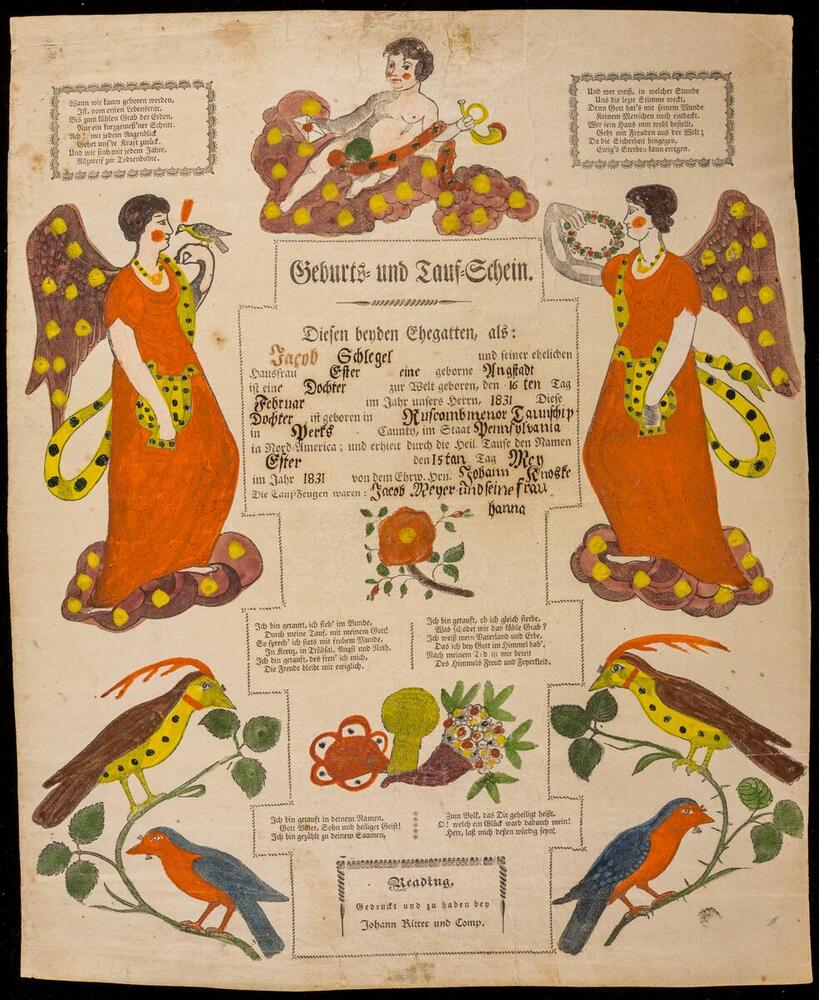 Wann wir kaum geboren werden,
Ist vom ersten Lebenstritt,
Bis zum kühlen Grab der Erden,
Nur ein kurzgemeß'ner Schritt.
Ach! mit jedem Augenblick
Gehet uns're Kraft zurück,
Und wir sind mit jedem Jahre,
Allzureif zur Todtenbahre.
Und wer weiß, in welcher Stunde
Uns die lezte Stimme weckt,
Denn Gott hat's mit seinem Munde
Keinem Menschen noch entdeckt.
Wer sein Haus nun wohl bestellt,
Geht mit Freuden aus der Welt;
Da die Sicherheit hingegen,
Ewig's Sterben kann erregen.
Geburts- und Tauf-Schein.
Diesen beyden Ehegatten, als:
Jacob Schlegel und seiner ehelichen
Hausfrau Ester eine geborne Angstadt
ist eine Dochter zur Welt geboren, den 16 ten Tag
Februar im Jahr unsers Herrn, 1831 Diese
Dochter ist geboren in Ruscombmenor Taunschip
in Perks Caunty, im Staat Pennsylvania
in Nord-America; und erhielt durch die Heil. Taufe den Namen
Ester den 15 tan Tag Mey
im Jahr 1831 von dem Ehrw. Hrn. Johann Knoske
Die Tauf-Zeugen waren: Jacob Meyer und seine frau
hanna
Ich bin getauft, ich steh' im Bunde,
Durch meine Tauf, mit meinem Gott!
So sprech' ich stets mit frohem Munde,
In Kreuz, in Trübsal, Angst und Noth.
Ich bin getauft, des freu' ich mich,
Die Freude bleibt mir ewiglich.
Ich bin getauft, ob ich gleich sterbe,
Was schadet mir das kühle Grab?
Ich weiß mein Vaterland und Erbe,
Das ich bey Gott im Himmel hab'.
Nach meinem Tod ist mir bereit
Des Himmels Freud und Feyerkleid.
Ich bin getauft in deinem Namen,
Gott Vater, Sohn und heiliger Geist!
Ich bin gezählt zu deinem Saamen,
Zum Volk, das Dir geheiligt heißt.
O! welch ein Glück ward dadurch mein!
Herr, laß mich dessen würdig seyn!
Reading,
Gedruckt und zu haben bey
Johann Ritter und Comp.